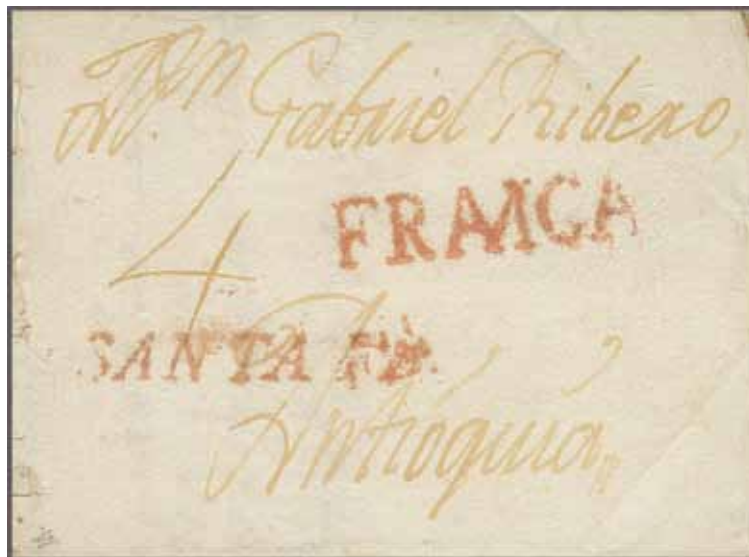 Dn Gabriel Ribero,
4
FRANCA
SANTA FE.
Antioquia